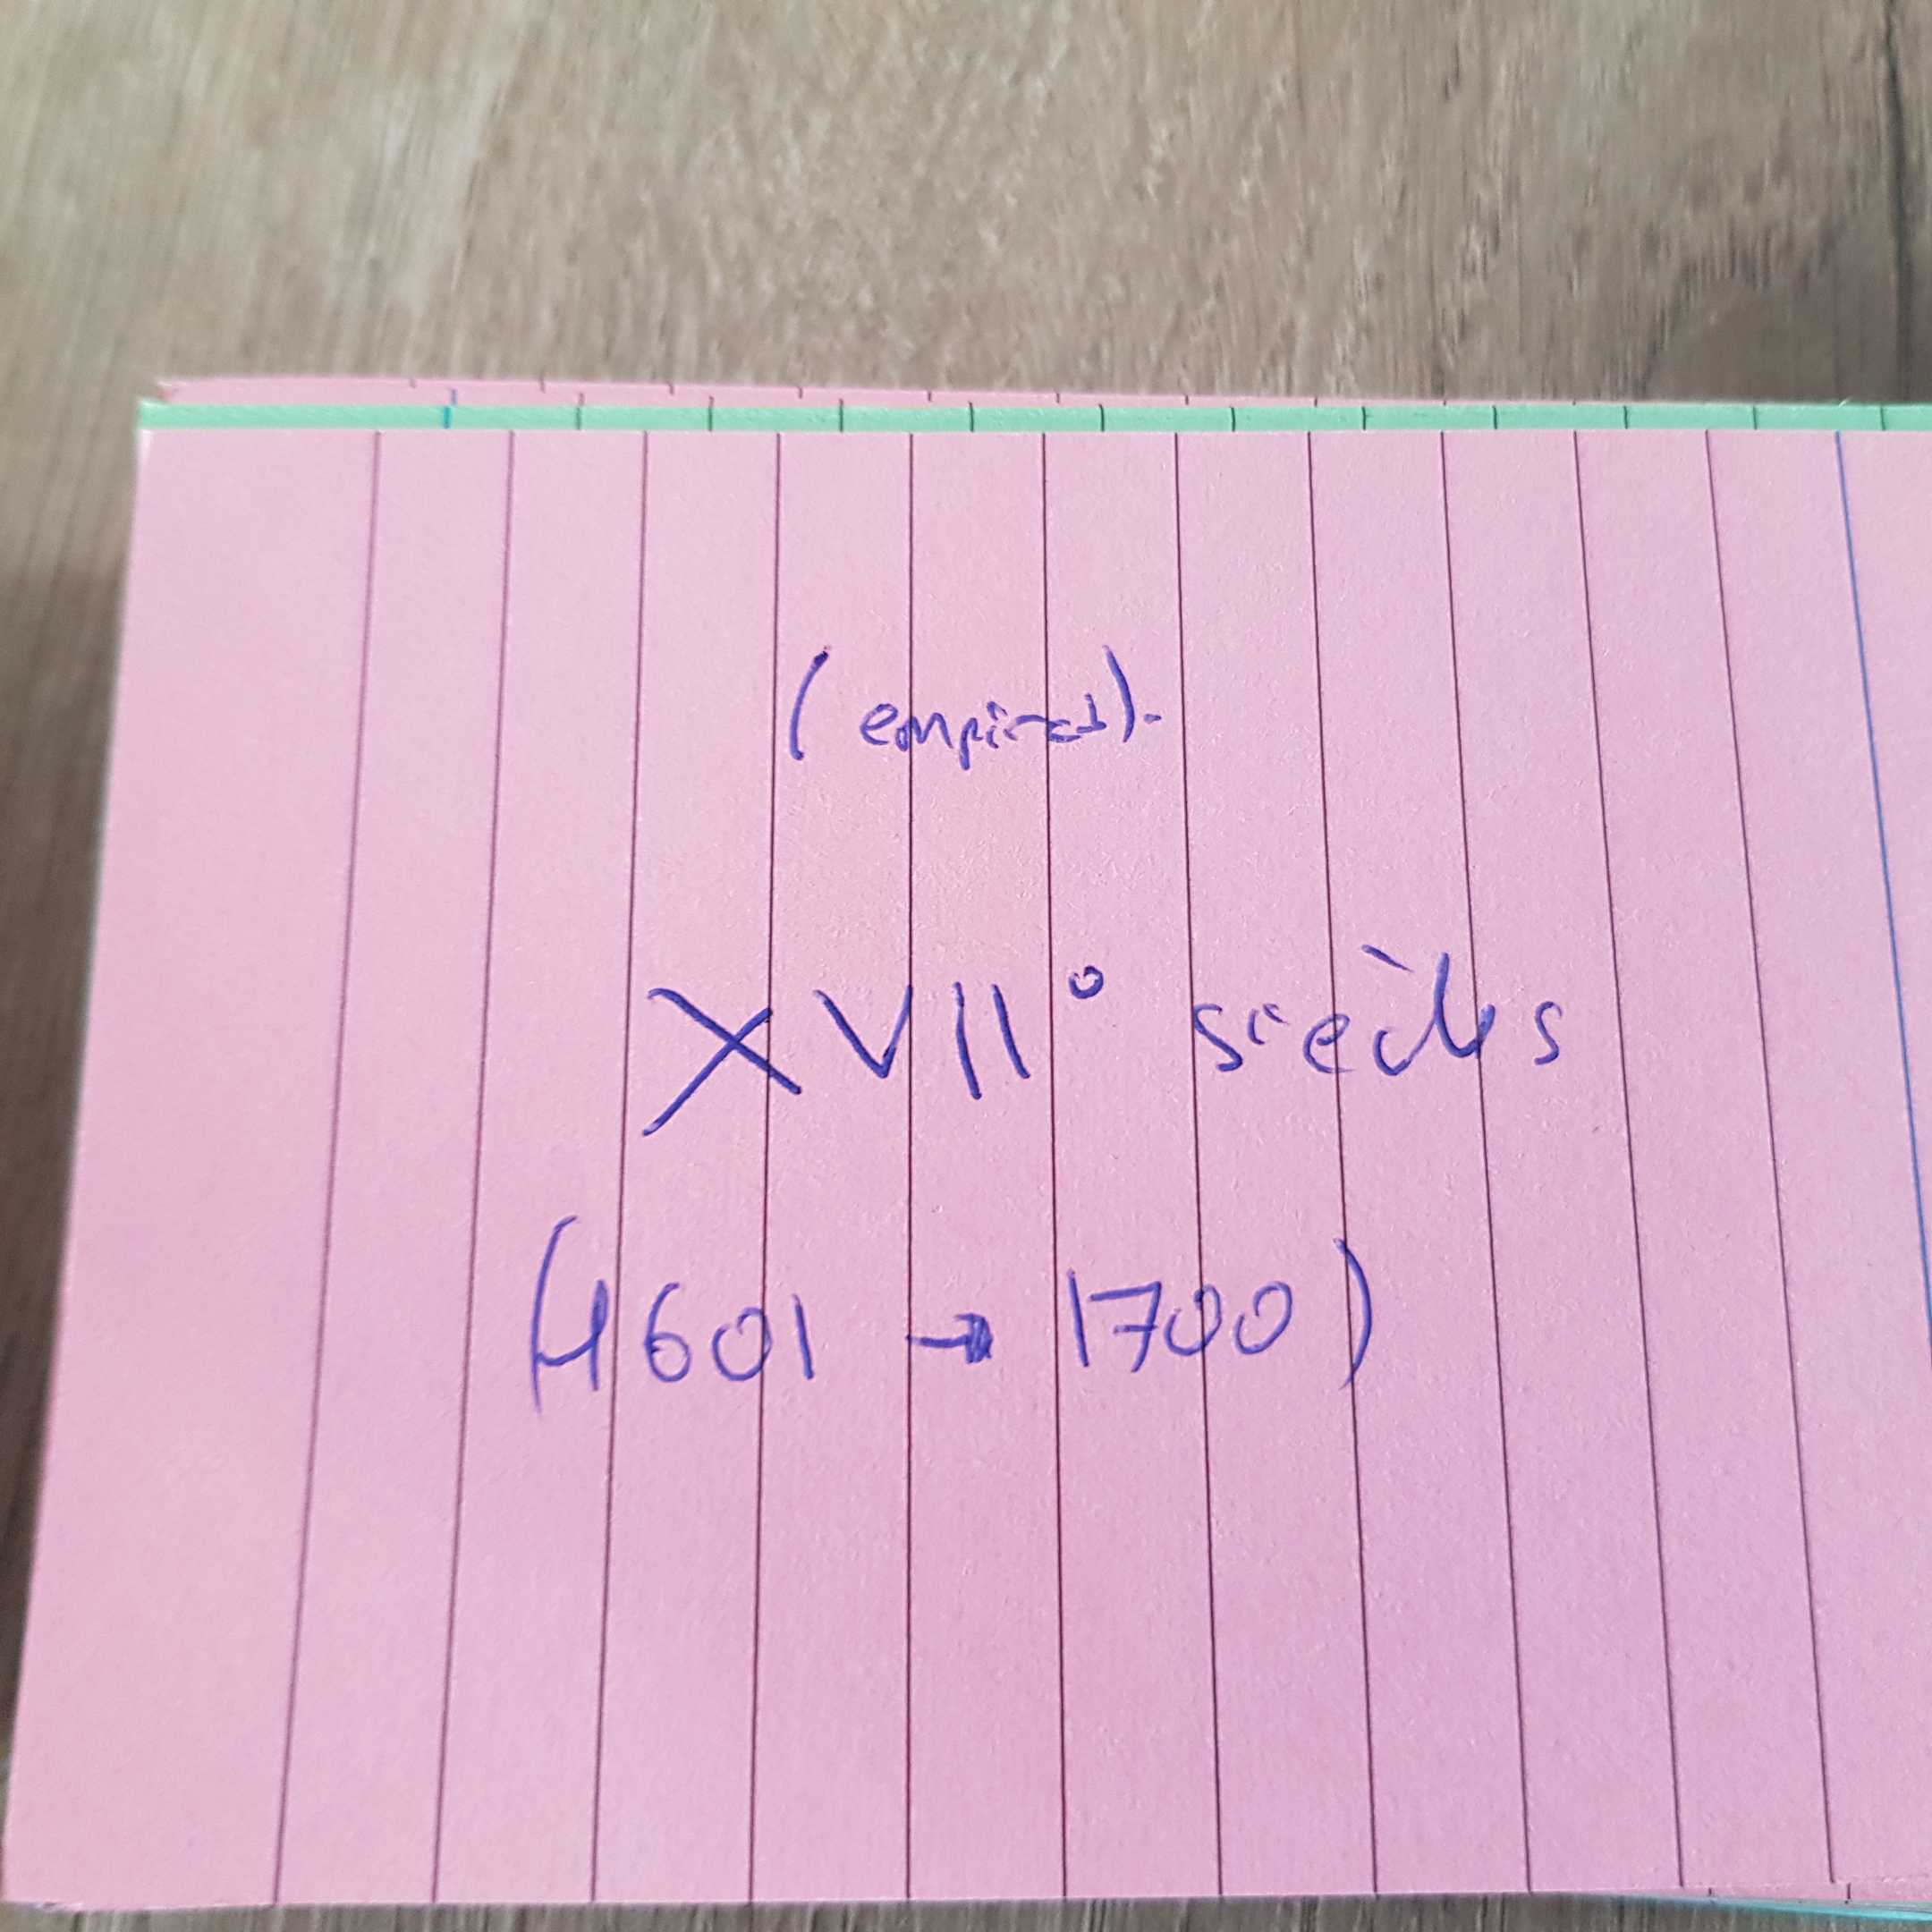 (empires).
XVII° siècles
(1601 → 1700)